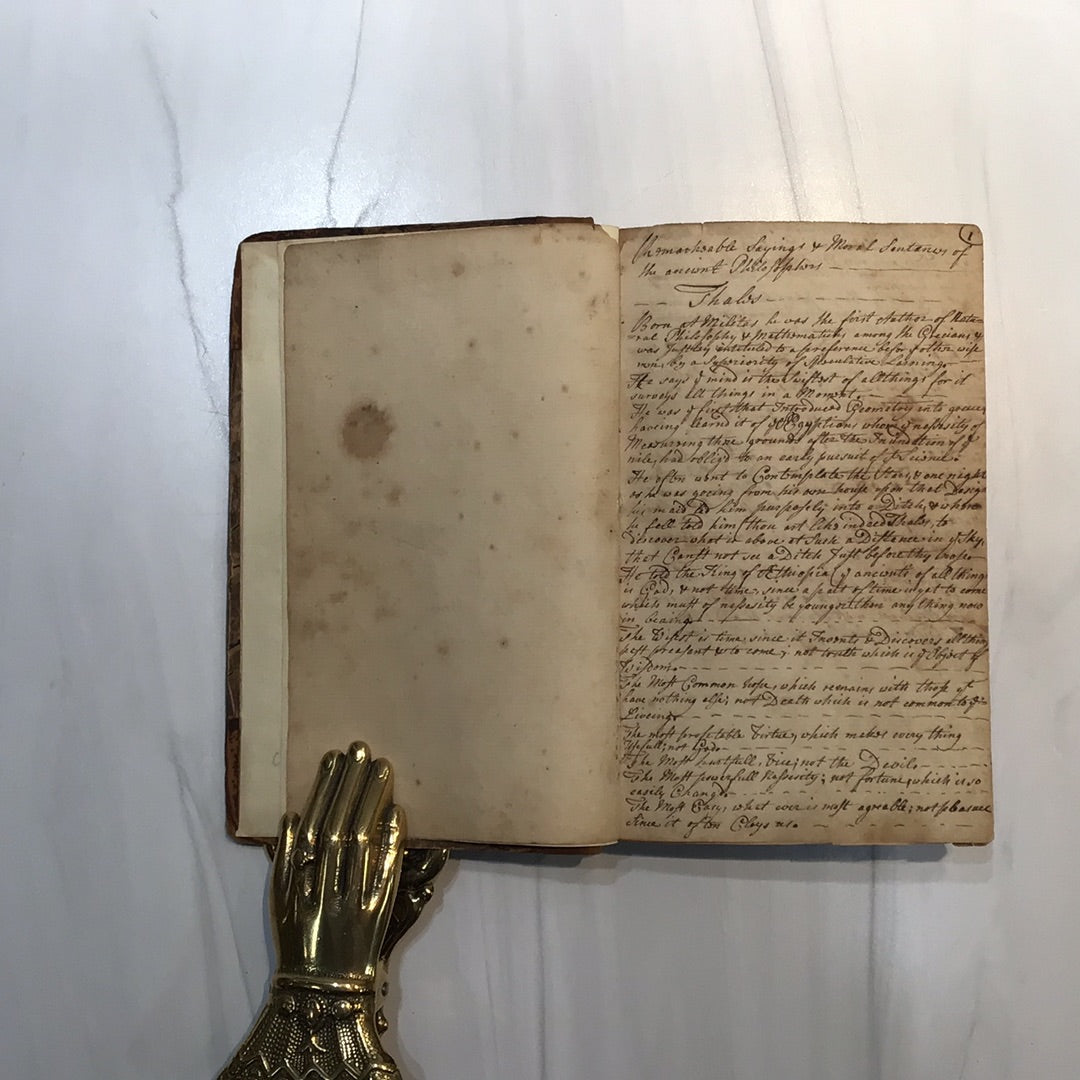 1
Remarkeable Sayings & Moral Sentances of
the ancient Philosophers
Thales
Born At Miletas he was the first Author of Natu-
ral Philosophy & Mathematicks among the Grecians, &
was Justley entetuled to a preference before other wise
men, by a Superiority of Speculative Learning.
He says ye mind is the Swiftest of all things for it
surveys all things in a Moment.
He was ye first that Introduced Geometory into
haveing learnd it of ye Egyptians whom ye nessisity of
Measurring their grounds after the Inundation of ye
nile, had obligd to an early pursuit of yt Sience.
He often went to Contemplate the Stars, & one night
as he was goeing from his own house upon that Design
his maid led him purposely into a Ditch, & when
he fell told him, thou art like indeed Thales, to
discover what is above at Such a Distance in ye Sky,
that Canst not see a Ditch Just before thy
He told the King of Ethiopia ye ancients of all things
is God, & not time, since a part of time is yet to come
which must of nessisity be younger than any thing now
in being
The Wisest is time, since it Invents & Discovers all things
past preasent & to come; not truth which is ye Object of
Wisdom.
The Most Common hope, which remains with those yt
have nothing else; not Death which is not common to ye
Liveing
The most profetable Virtue, which makes every thing
Usefull; not Gods
The Most hurtfull, Vice; not the Devils
The Most powerfull Nessisity; not fortune, which is so
easily Changd
The Most Easy, what ever is most agreable; not pleasure
Since it often Cloys us.